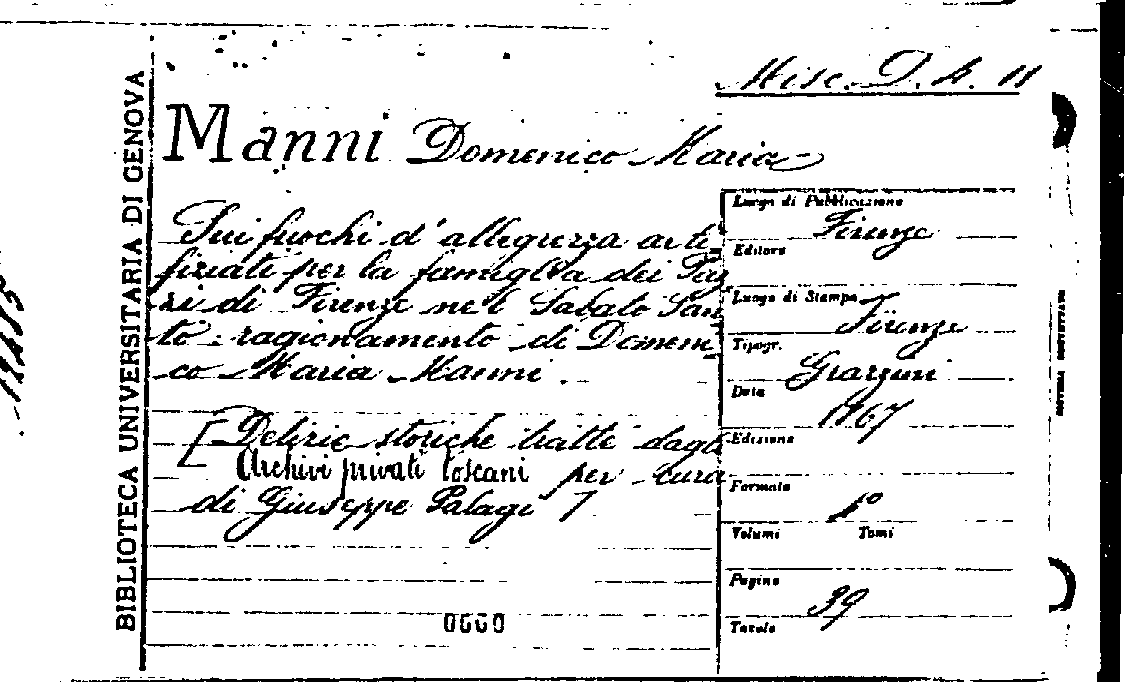 Misc. D. 4. 11
BIBLIOTECA UNIVERSITARIA DI GENOVA
Manni Domenico Maria
Sui fuochi d'allegrezza arti-
fiziati per la famiglia dei Paz-
zi di Firenze nel Sabato San-
to: ragionamento di Domeni-
co Maria Manni.
[Delizie storiche tratte dagli
Archivi privati toscani per cura
di Giuseppe Palagi]
0660
Luogo di Pubblicazione
Firenze
Editore
Luogo di Stampa
Firenze
Tipogr.
Grazzini
Data
1867
Edizione
Formato
Volumi Tomi
Pagine
39
Tavole